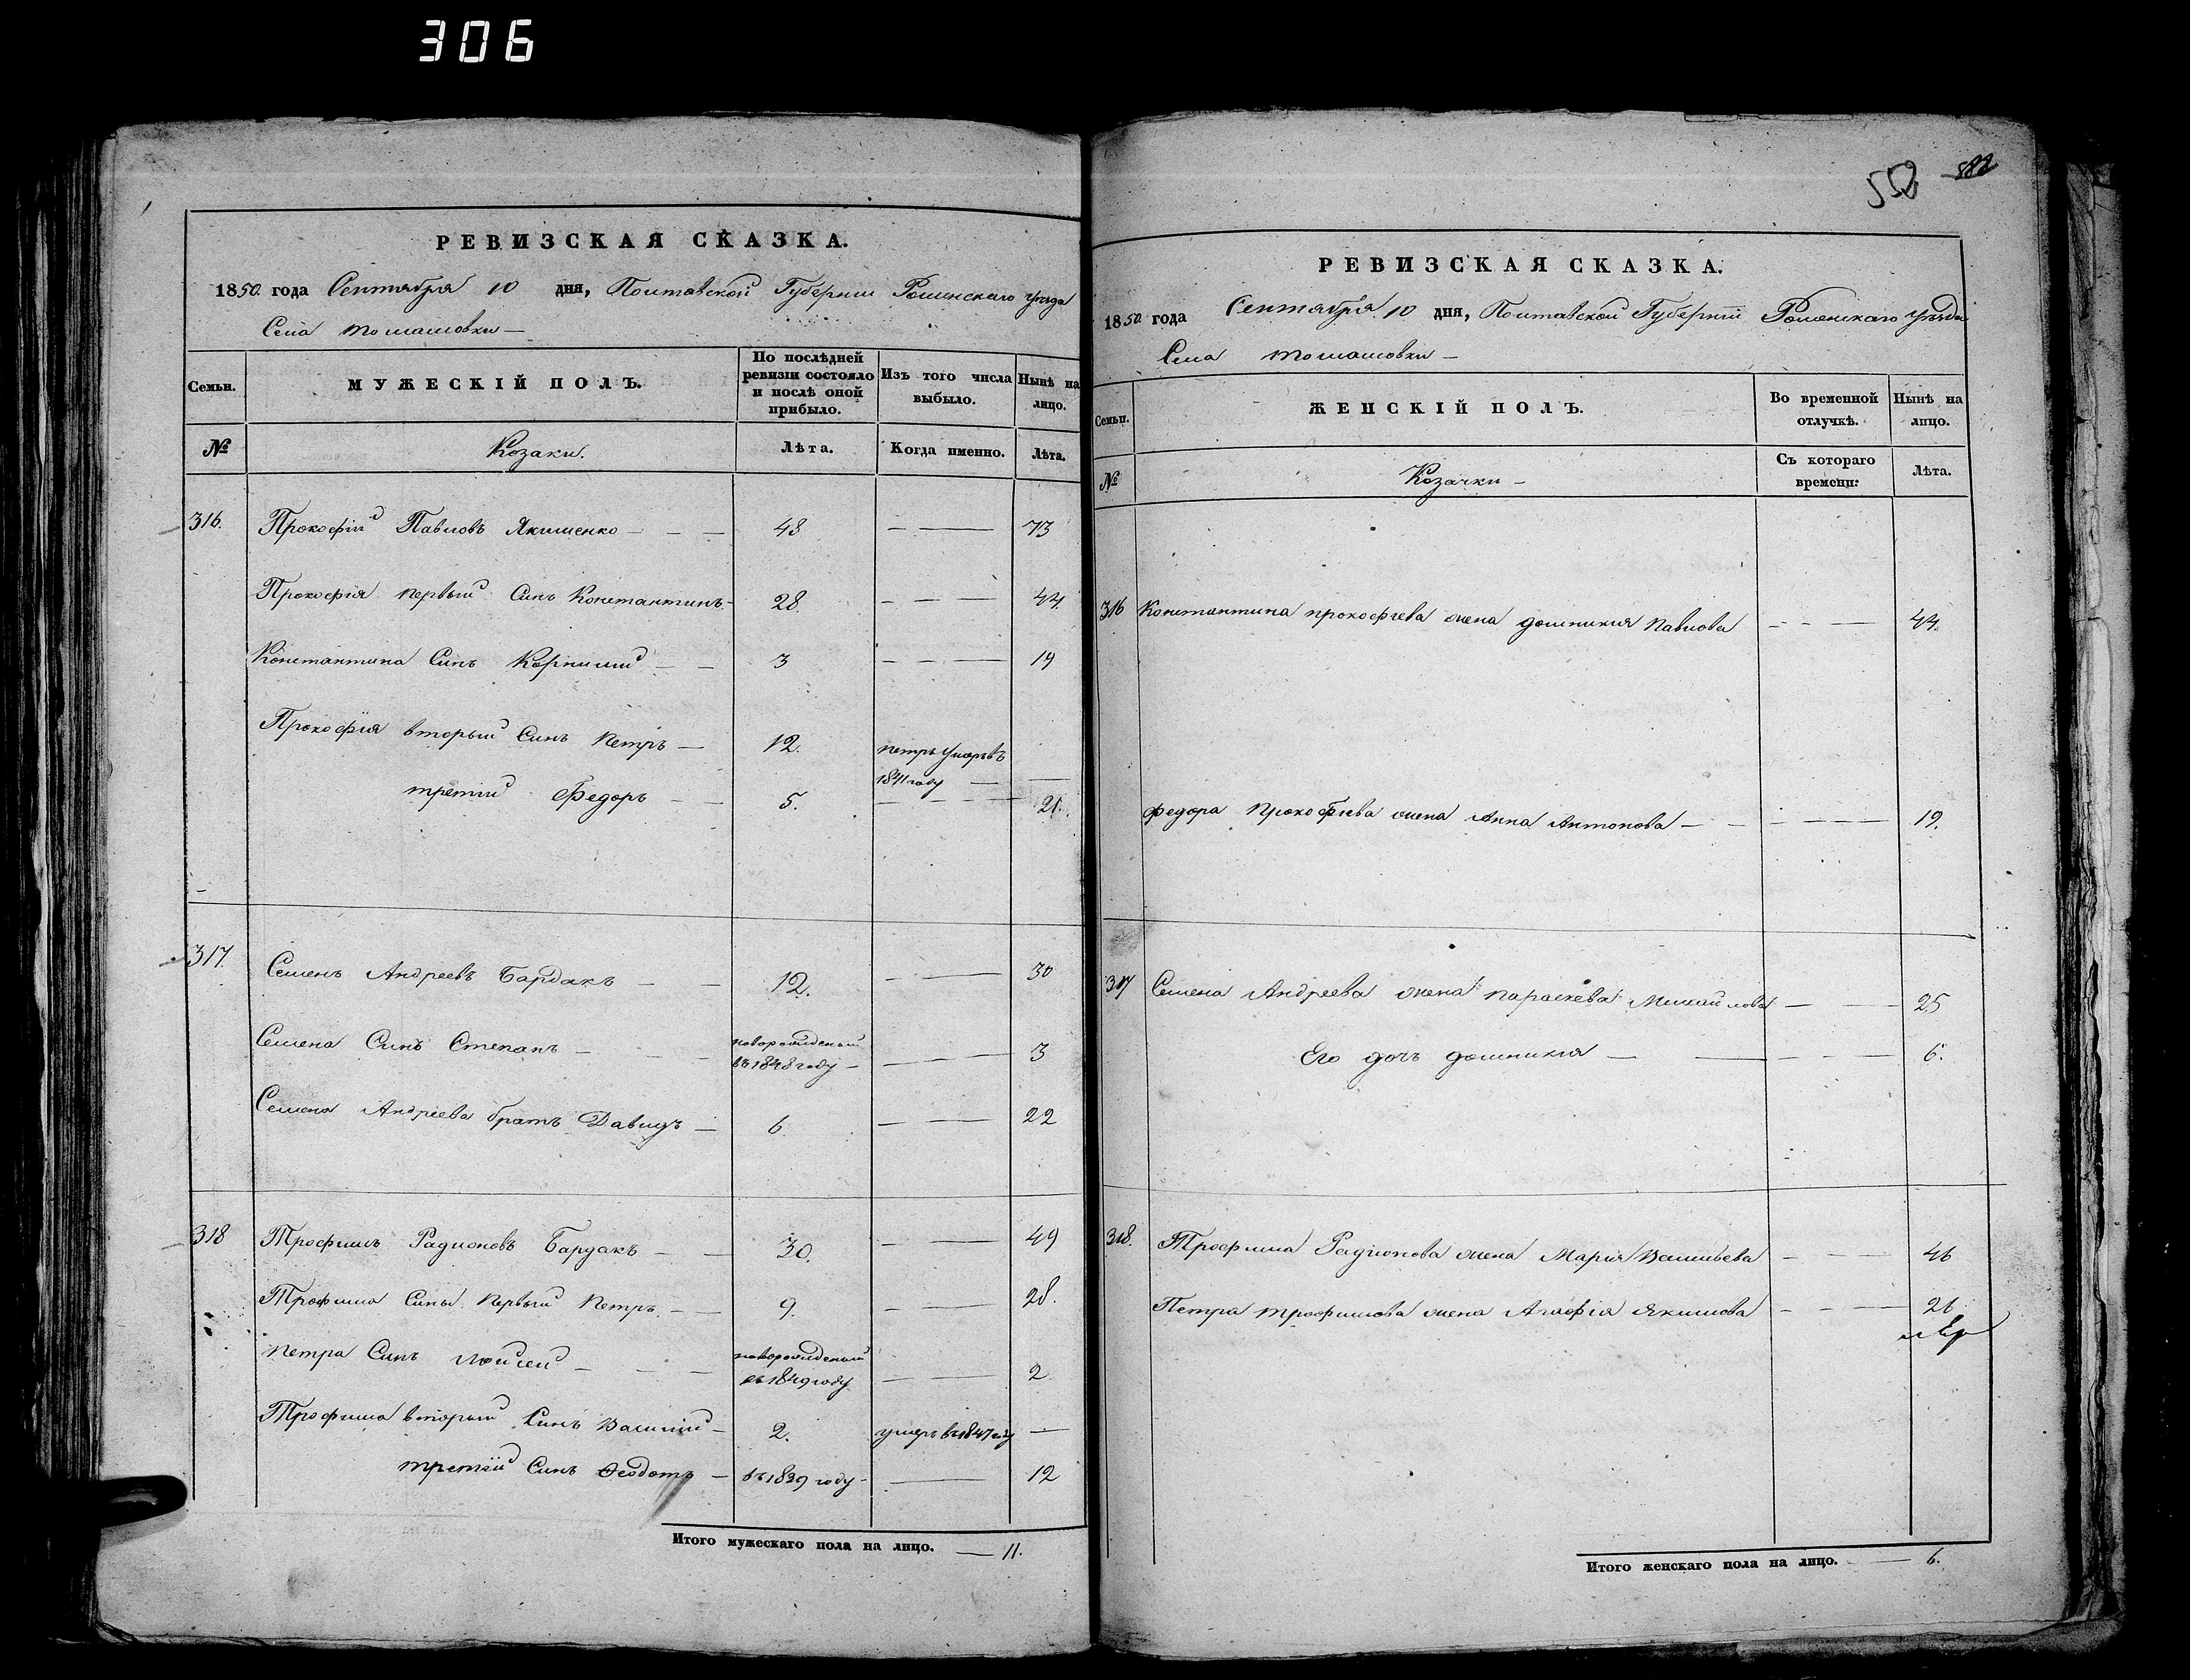 306
РЕВИЗСКАЯ СКАЗКА.
1850 года Сентября 10 дня, Полтавской Губернии Роменскаго уезда
Села Томашовки —
Семьи.
МУЖЕСКІЙ ПОЛЪ.
По послѣдней ревизіи состояло и послѣ оной прибыло.
Изъ того числа выбыло.
Нынѣ на лицо.
№
Козаки.
Лѣта.
Когда именно.
Лѣта.
316. Прокофій Павловъ Якименко — — — 48 — — 73
Прокофія первый Синъ Константинъ — 28 — — — 44
Константина Синъ Корнилий — — 3 — — — 19
Прокофія вторый Синъ Петръ — 12. петръ умеръ въ 1841 году — —
третий Федоръ — — 5. — — — 21.
317. Семенъ Андреевъ Бардакъ — — 12. — — 30
Семена Синъ Степанъ — — — новорожденый въ 1848 году — — — 3
Семена Андреева братъ Давидъ — 6. — — 22
318 Трофимъ Радионовъ Бардакъ — — 30. — — 49
Трофима Сины первый Петръ. — — 9. — — 28.
петра Синъ Моисей — — — новорожденый въ 1849 году — — 2
Трофима вторый Синъ Василий — 2. умеръ въ 1847 году —
третій Синъ Феодотъ — въ 1839 году — — 12
Итого мужескаго пола на лицо. — 11.
552
РЕВИЗСКАЯ СКАЗКА.
1850 года Сентября 10 дня, Полтавской Губерніи Роменскаго уезда
Села Томашовки —
Семьи.
ЖЕНСКІЙ ПОЛЪ.
Во временной отлучкѣ.
Нынѣ на лицо.
№
Козачки —
Съ котораго времени:
Лѣта.
316 Константина прокофиева жена домникия павлова — — — 44.
Федора Прокофиева жена Анна Антонова — — — — — 19.
317 Семена Андреева жена параскева Михайлова — — 25
Его дочь домникия — — — — — 6.
318. Трофима Радіонова жена Мария Васильева — — 46
Петра трофимова жена Агафія Якимова — — — 26
Итого женскаго пола на лицо. — 6.